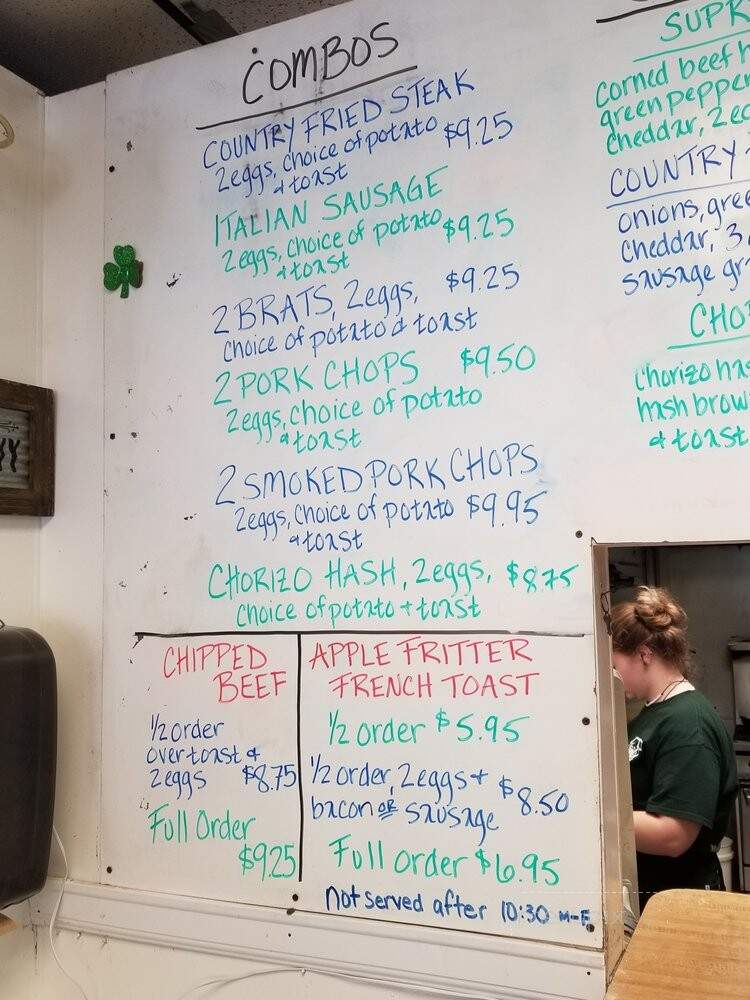 COMBOS
COUNTRY FRIED STEAK
2eggs, choice of potato $9.25
& toast
ITALIAN SAUSAGE
2eggs, choice of potato $9.25
& toast
2 BRATS, 2eggs, $9.25
choice of potato & toast
2 PORK CHOPS $9.50
2eggs, choice of potato
& toast
2 SMOKED PORK CHOPS
2eggs, choice of potato $9.95
& toast
CHORIZO HASH, 2eggs, $8.75
choice of potato + toast
CHIPPED
BEEF
1/2 order
over toast &
2eggs $8.75
Full Order
$9.25
APPLE FRITTER
FRENCH TOAST
1/2 order $5.95
1/2 order, 2eggs +
bacon or sausage $8.50
Full order $6.95
not served after 10:30 M-F
SUPR
corned beef h
green pepper
cheddar, 2eg
COUNTRY
onions, gree
cheddar, 3
sausage gr
CHO
Chorizo has
hash brow
& toast